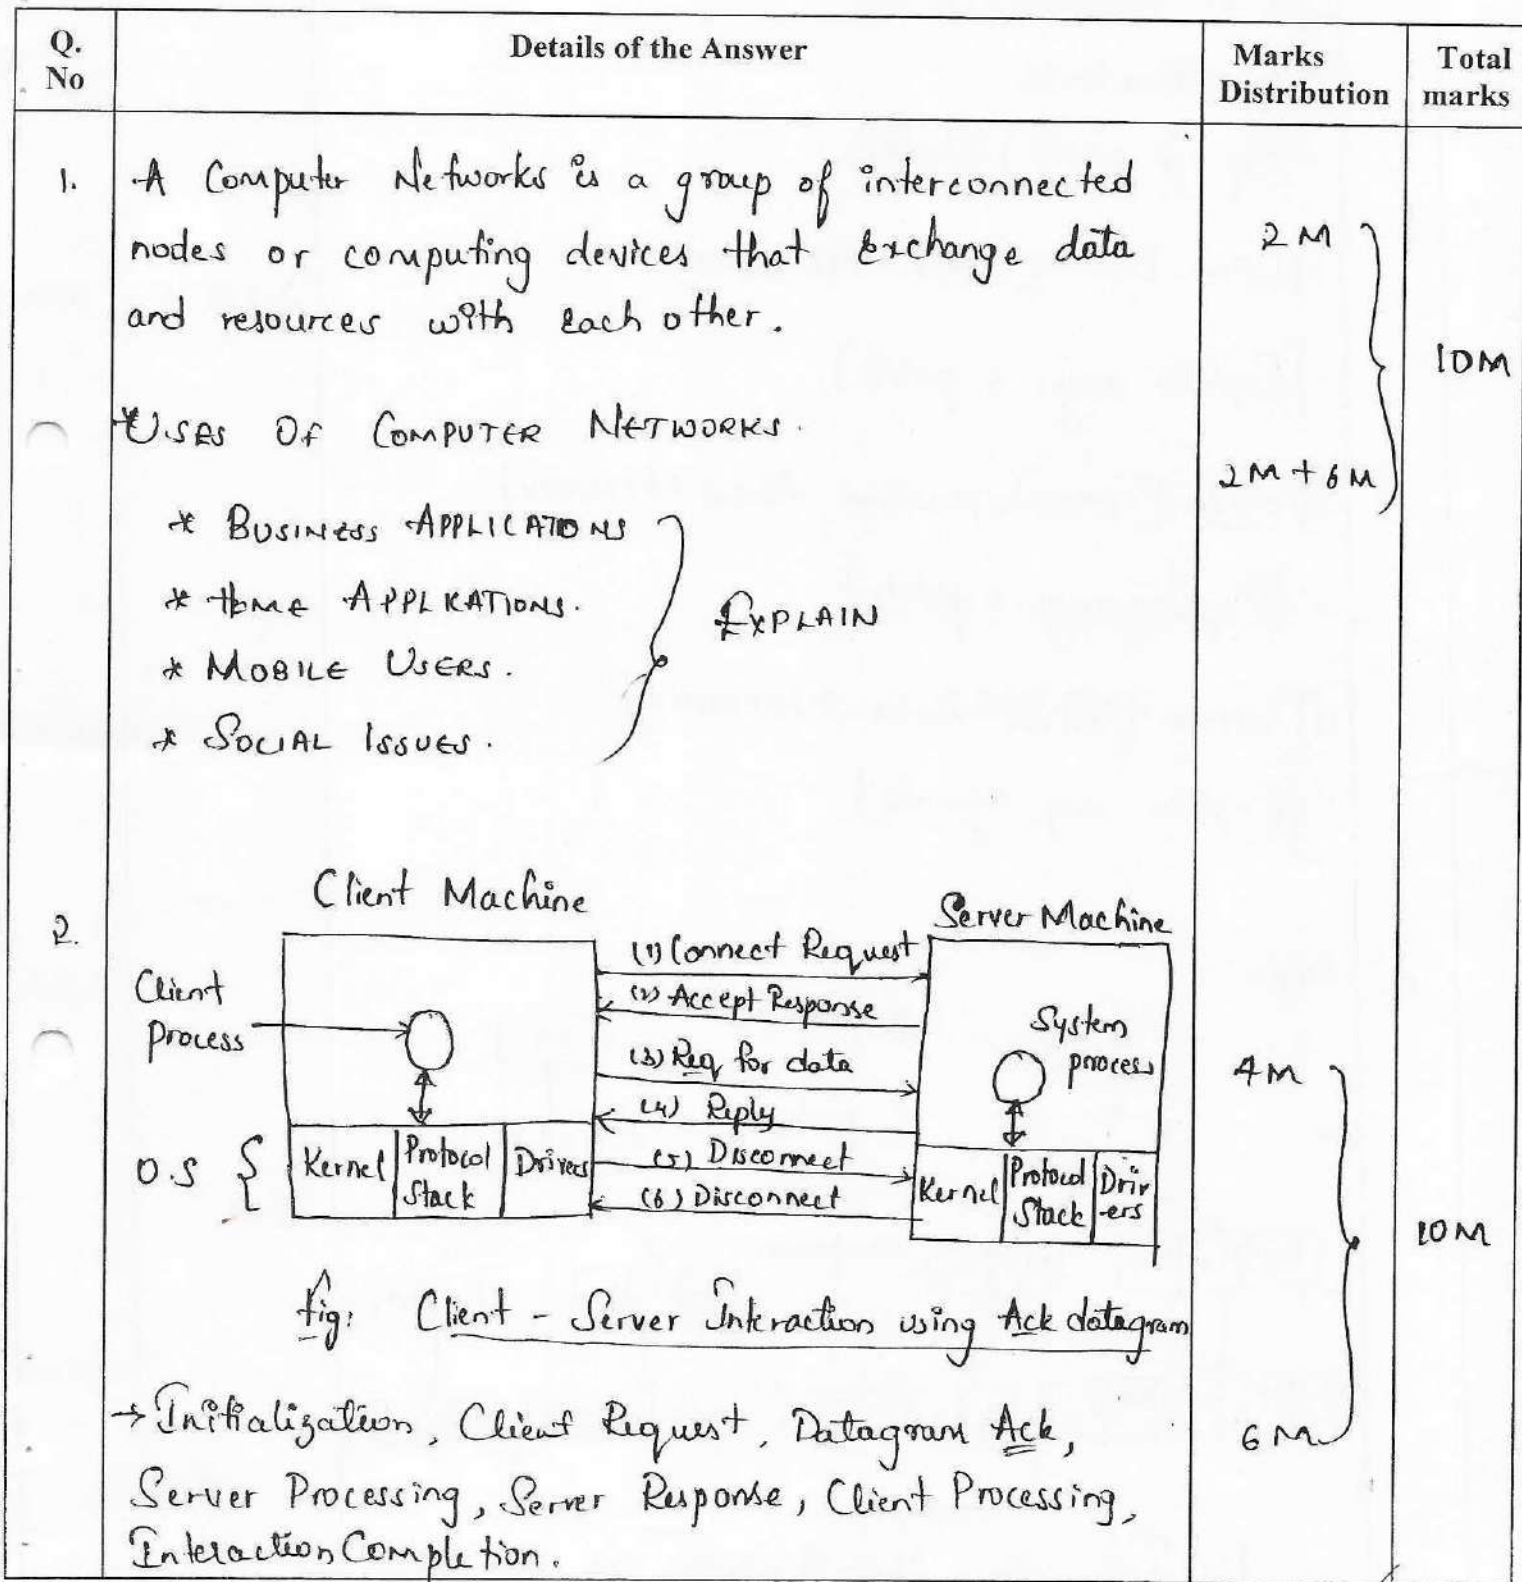 Q. No
Details of the Answer
Marks Distribution
Total marks
1.
A Computer Networks is a group of interconnected
nodes or computing devices that Exchange data
and resources with Each other.
2M
10M
*USES OF COMPUTER NETWORKS.
2M + 6M
* BUSINESS APPLICATIONS
* HOME APPLICATIONS.
* MOBILE USERS.
* SOCIAL ISSUES.
EXPLAIN
2.
Client Machine
Server Machine
Client
Process
(1) Connect Request
(2) Accept Response
(3) Req for data
(4) Reply
(5) Disconnect
(6) Disconnect
System
process
O.S
Kernel
Protocol
Stack
Drivers
Kernel
Protocol
Stack
Driv
-ers
4M
10M
fig: Client - Server Interaction using Ack datagram
→ Initialization, Client Request, Datagram Ack,
Server Processing, Server Response, Client Processing,
Interaction Completion.
6M